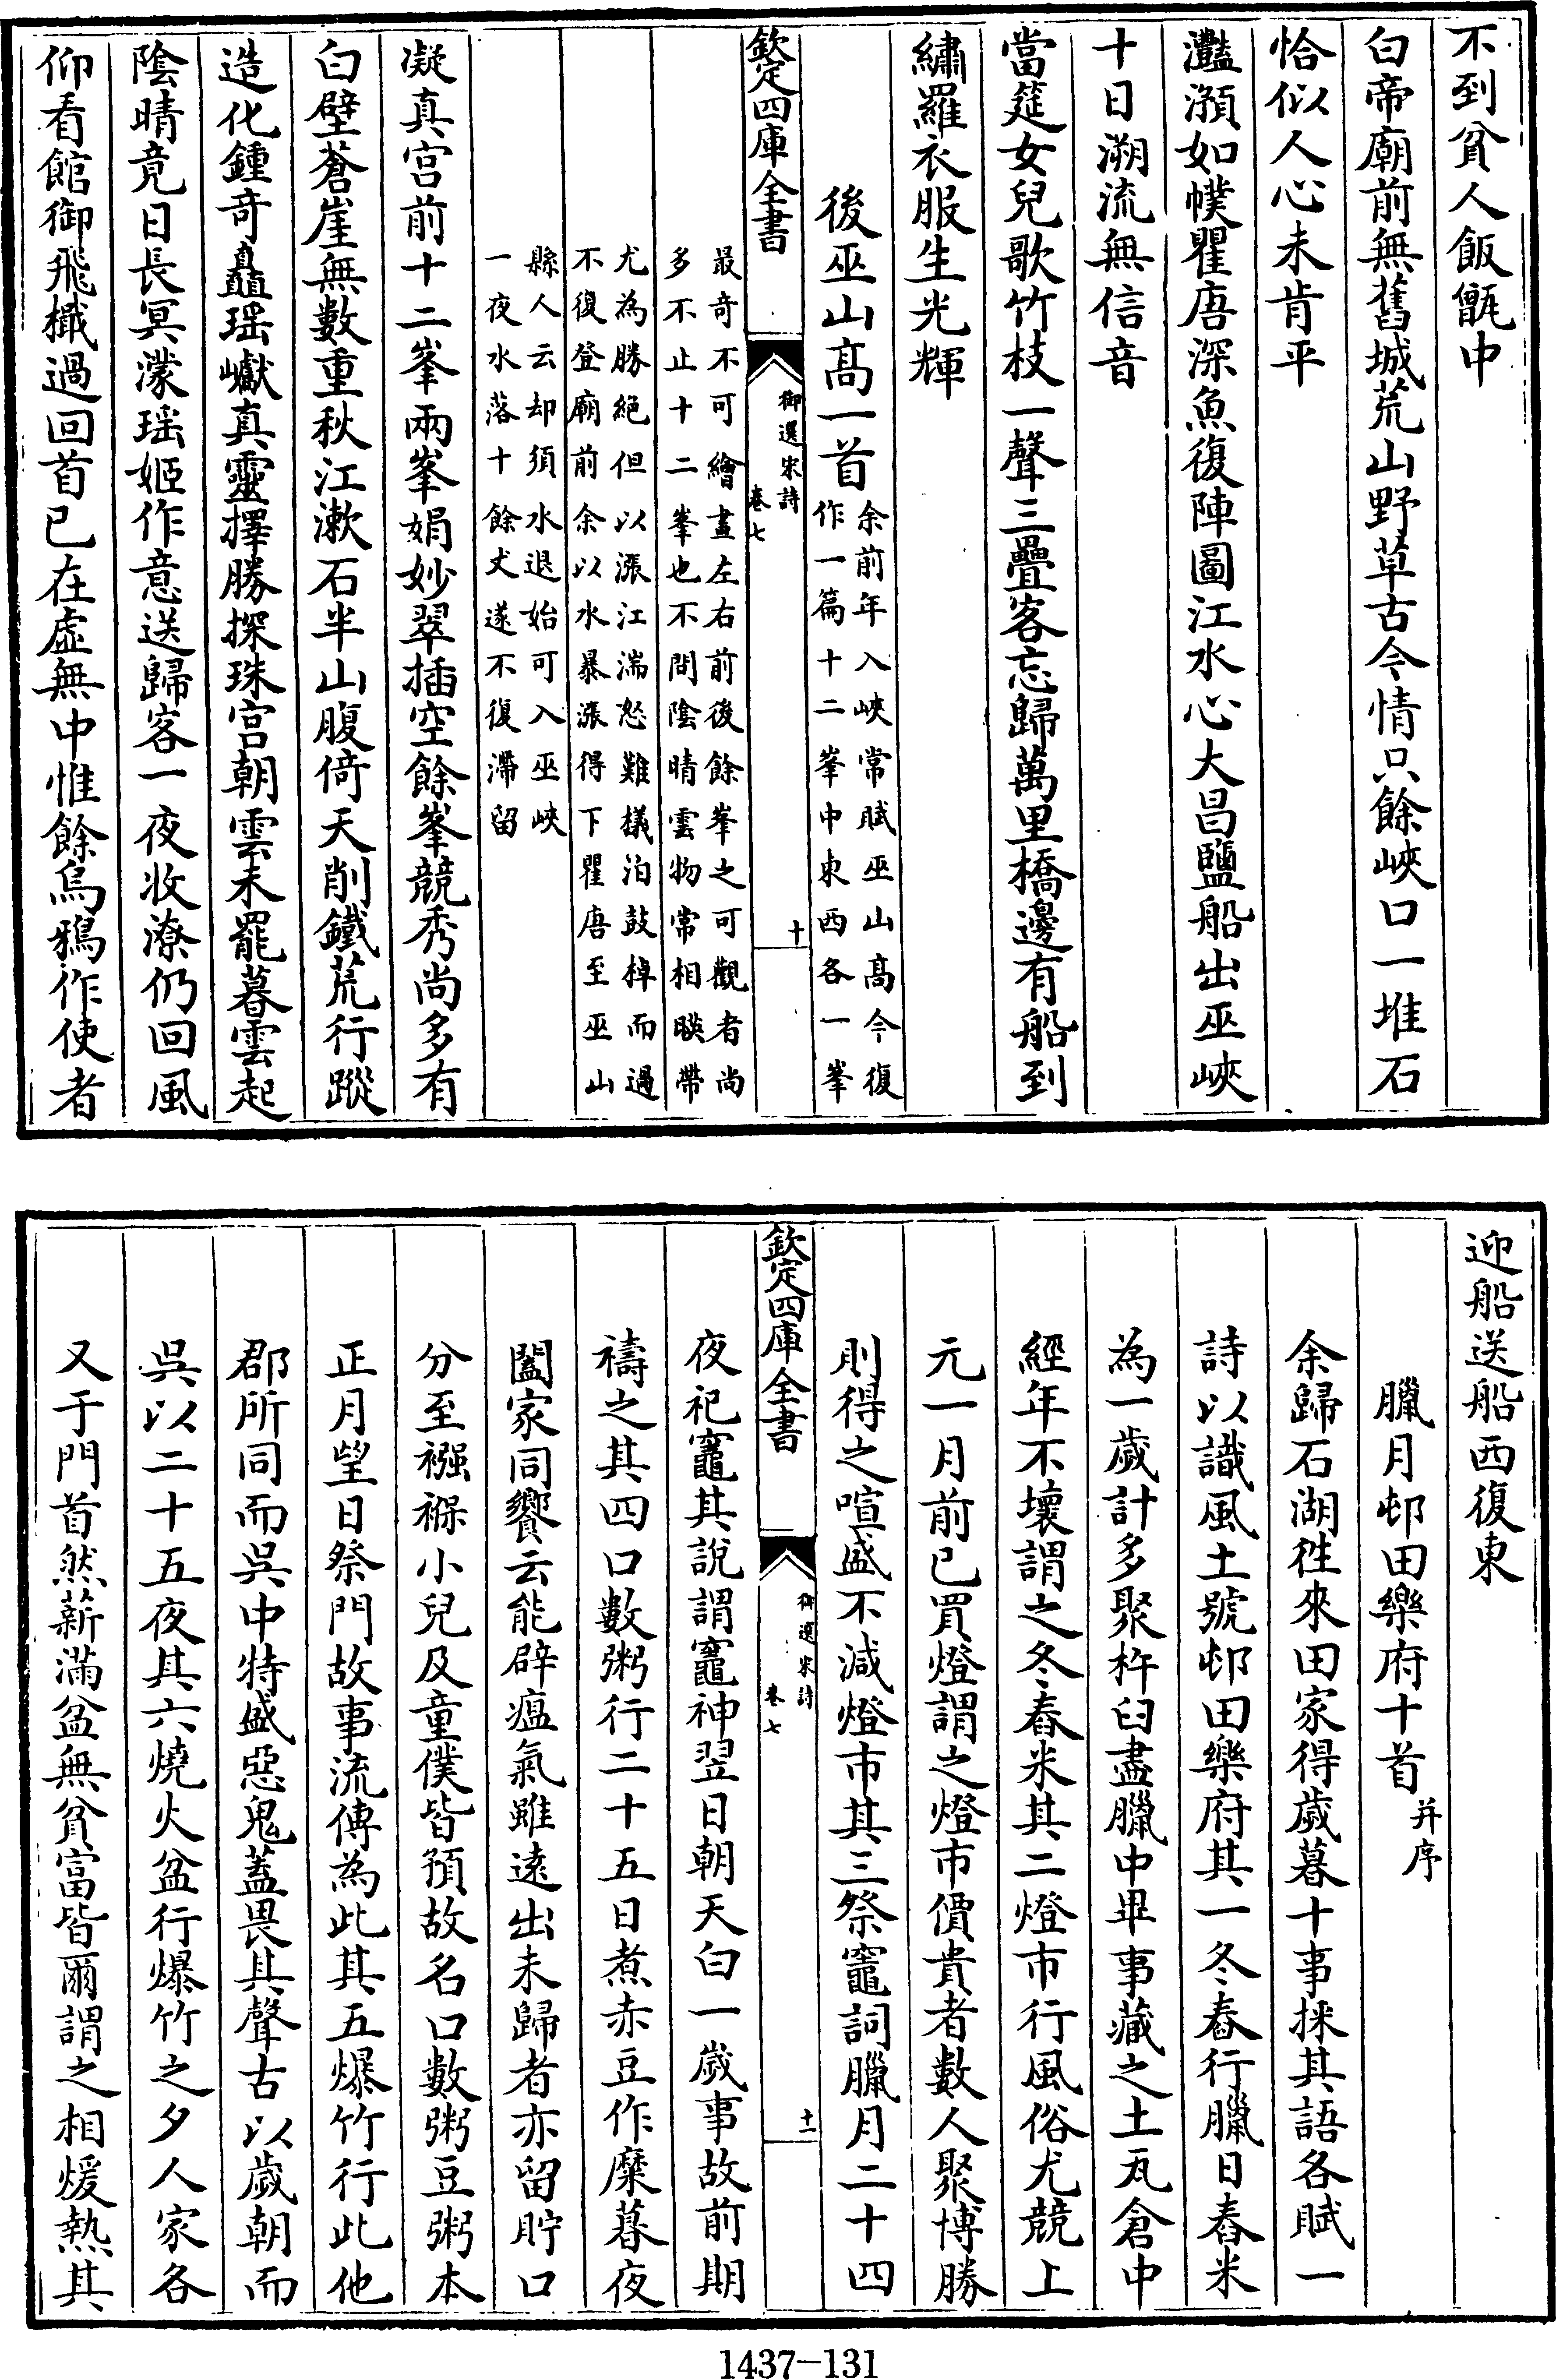 不到貧人飯甑中
白帝廟前無舊城荒山野草古今情只餘峽口一堆石
恰似人心未肯平
灩澦如幞瞿唐深魚復陣圖江水心大昌鹽船出巫峽
十日溯流無信音
當筵女兒歌竹枝一聲三疊客忘歸萬里橋邊有船到
繡羅衣服生光輝
後巫山髙一首余前年入峽常賦巫山髙今復
作一篇十二峯中東西各一峯
欽定四庫全書
御選宋詩
卷七
十
最竒不可繪畫左右前後餘峯之可觀者尚
多不止十二峯也不問陰晴雲物常相暎帶
尤為勝絶但以漲江湍怒難檥泊鼓棹而過
不復登廟前余以水暴漲得下瞿唐至巫山
縣人云却須水退始可入巫峽
一夜水落十餘丈遂不復滯留
凝真宫前十二峯兩峯娟妙翠插空餘峯競秀尚多有
白壁蒼崖無數重秋江漱石半山腹倚天削鐵荒行蹤
造化鍾竒矗瑶巘真靈擇勝探珠宫朝雲未罷暮雲起
陰晴竟日長冥濛瑶姬作意送歸客一夜收潦仍回風
仰看館御飛檝過回首已在虛無中惟餘烏鴉作使者
迎船送船西復東
臘月邨田樂府十首并序
余歸石湖徃來田家得歳暮十事採其語各賦一
詩以識風土號邨田樂府其一冬舂行臘日舂米
為一歳計多聚杵臼盡臘中畢事藏之土瓦倉中
經年不壞謂之冬舂米其二燈市行風俗尤競上
元一月前已買燈謂之燈市價貴者數人聚博勝
則得之喧盛不減燈市其三祭竈詞臘月二十四
欽定四庫全書
御選宋詩
卷七
十一
夜祀竈其說謂竈神翌日朝天白一歳事故前期
禱之其四口數粥行二十五日煮赤豆作糜暮夜
闔家同饗云能辟瘟氣雖逺出未歸者亦留貯口
分至襁褓小兒及童僕皆預故名口數粥豆粥本
正月望日祭門故事流傳為此其五爆竹行此他
郡所同而吳中特盛惡鬼蓋畏其聲古以歳朝而
吳以二十五夜其六燒火盆行爆竹之夕人家各
又于門首然薪滿盆無貧富皆爾謂之相煖熱其
1437-131